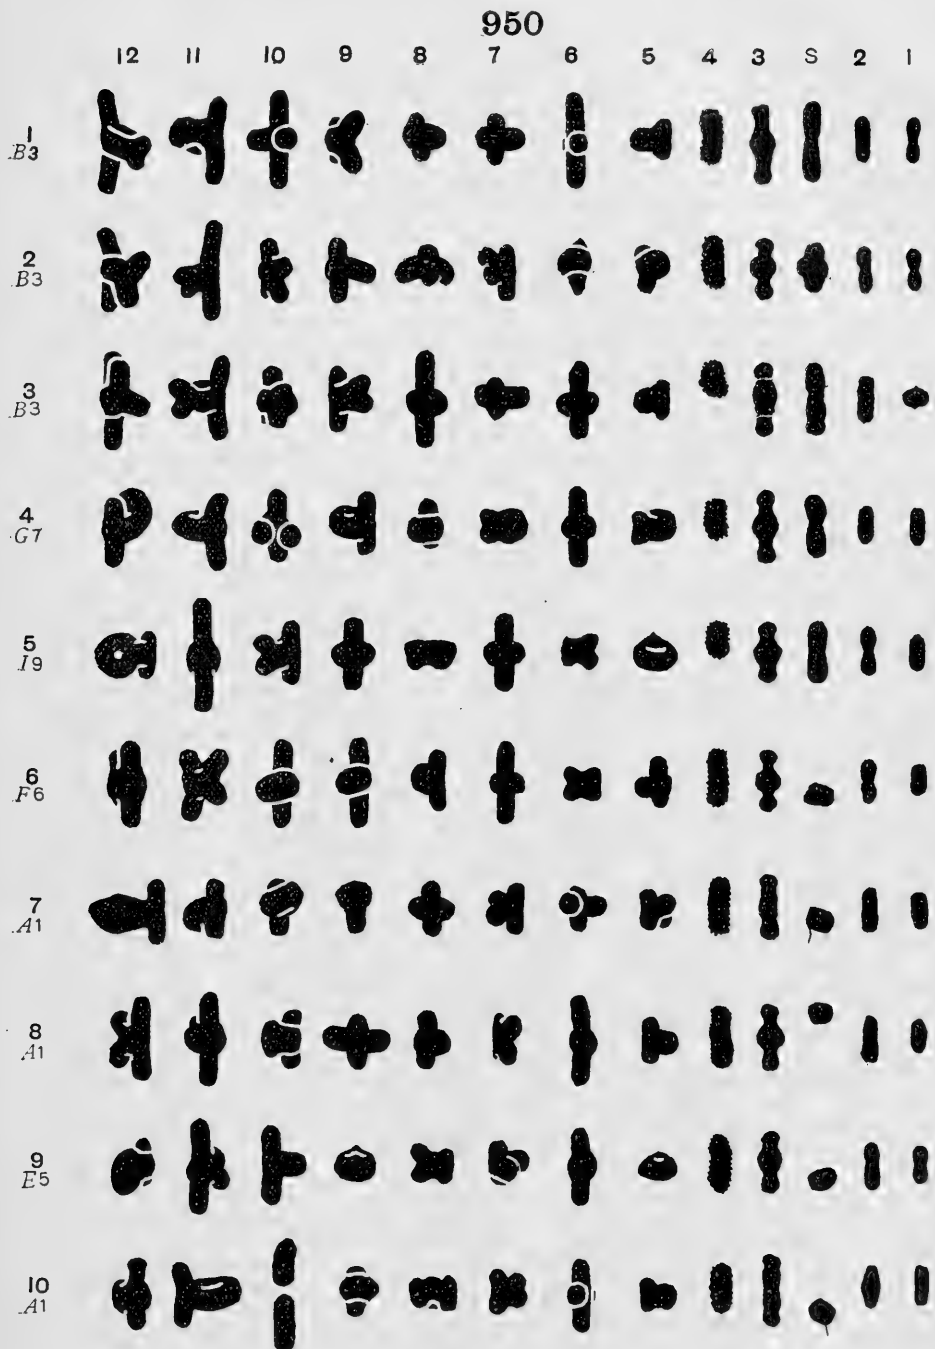 950
12 11 10 9 8 7 6 5 4 3 S 2 1
1
B3
2
B3
3
B3
4
G7
5
I9
6
F6
7
A1
8
A1
9
E5
10
A1